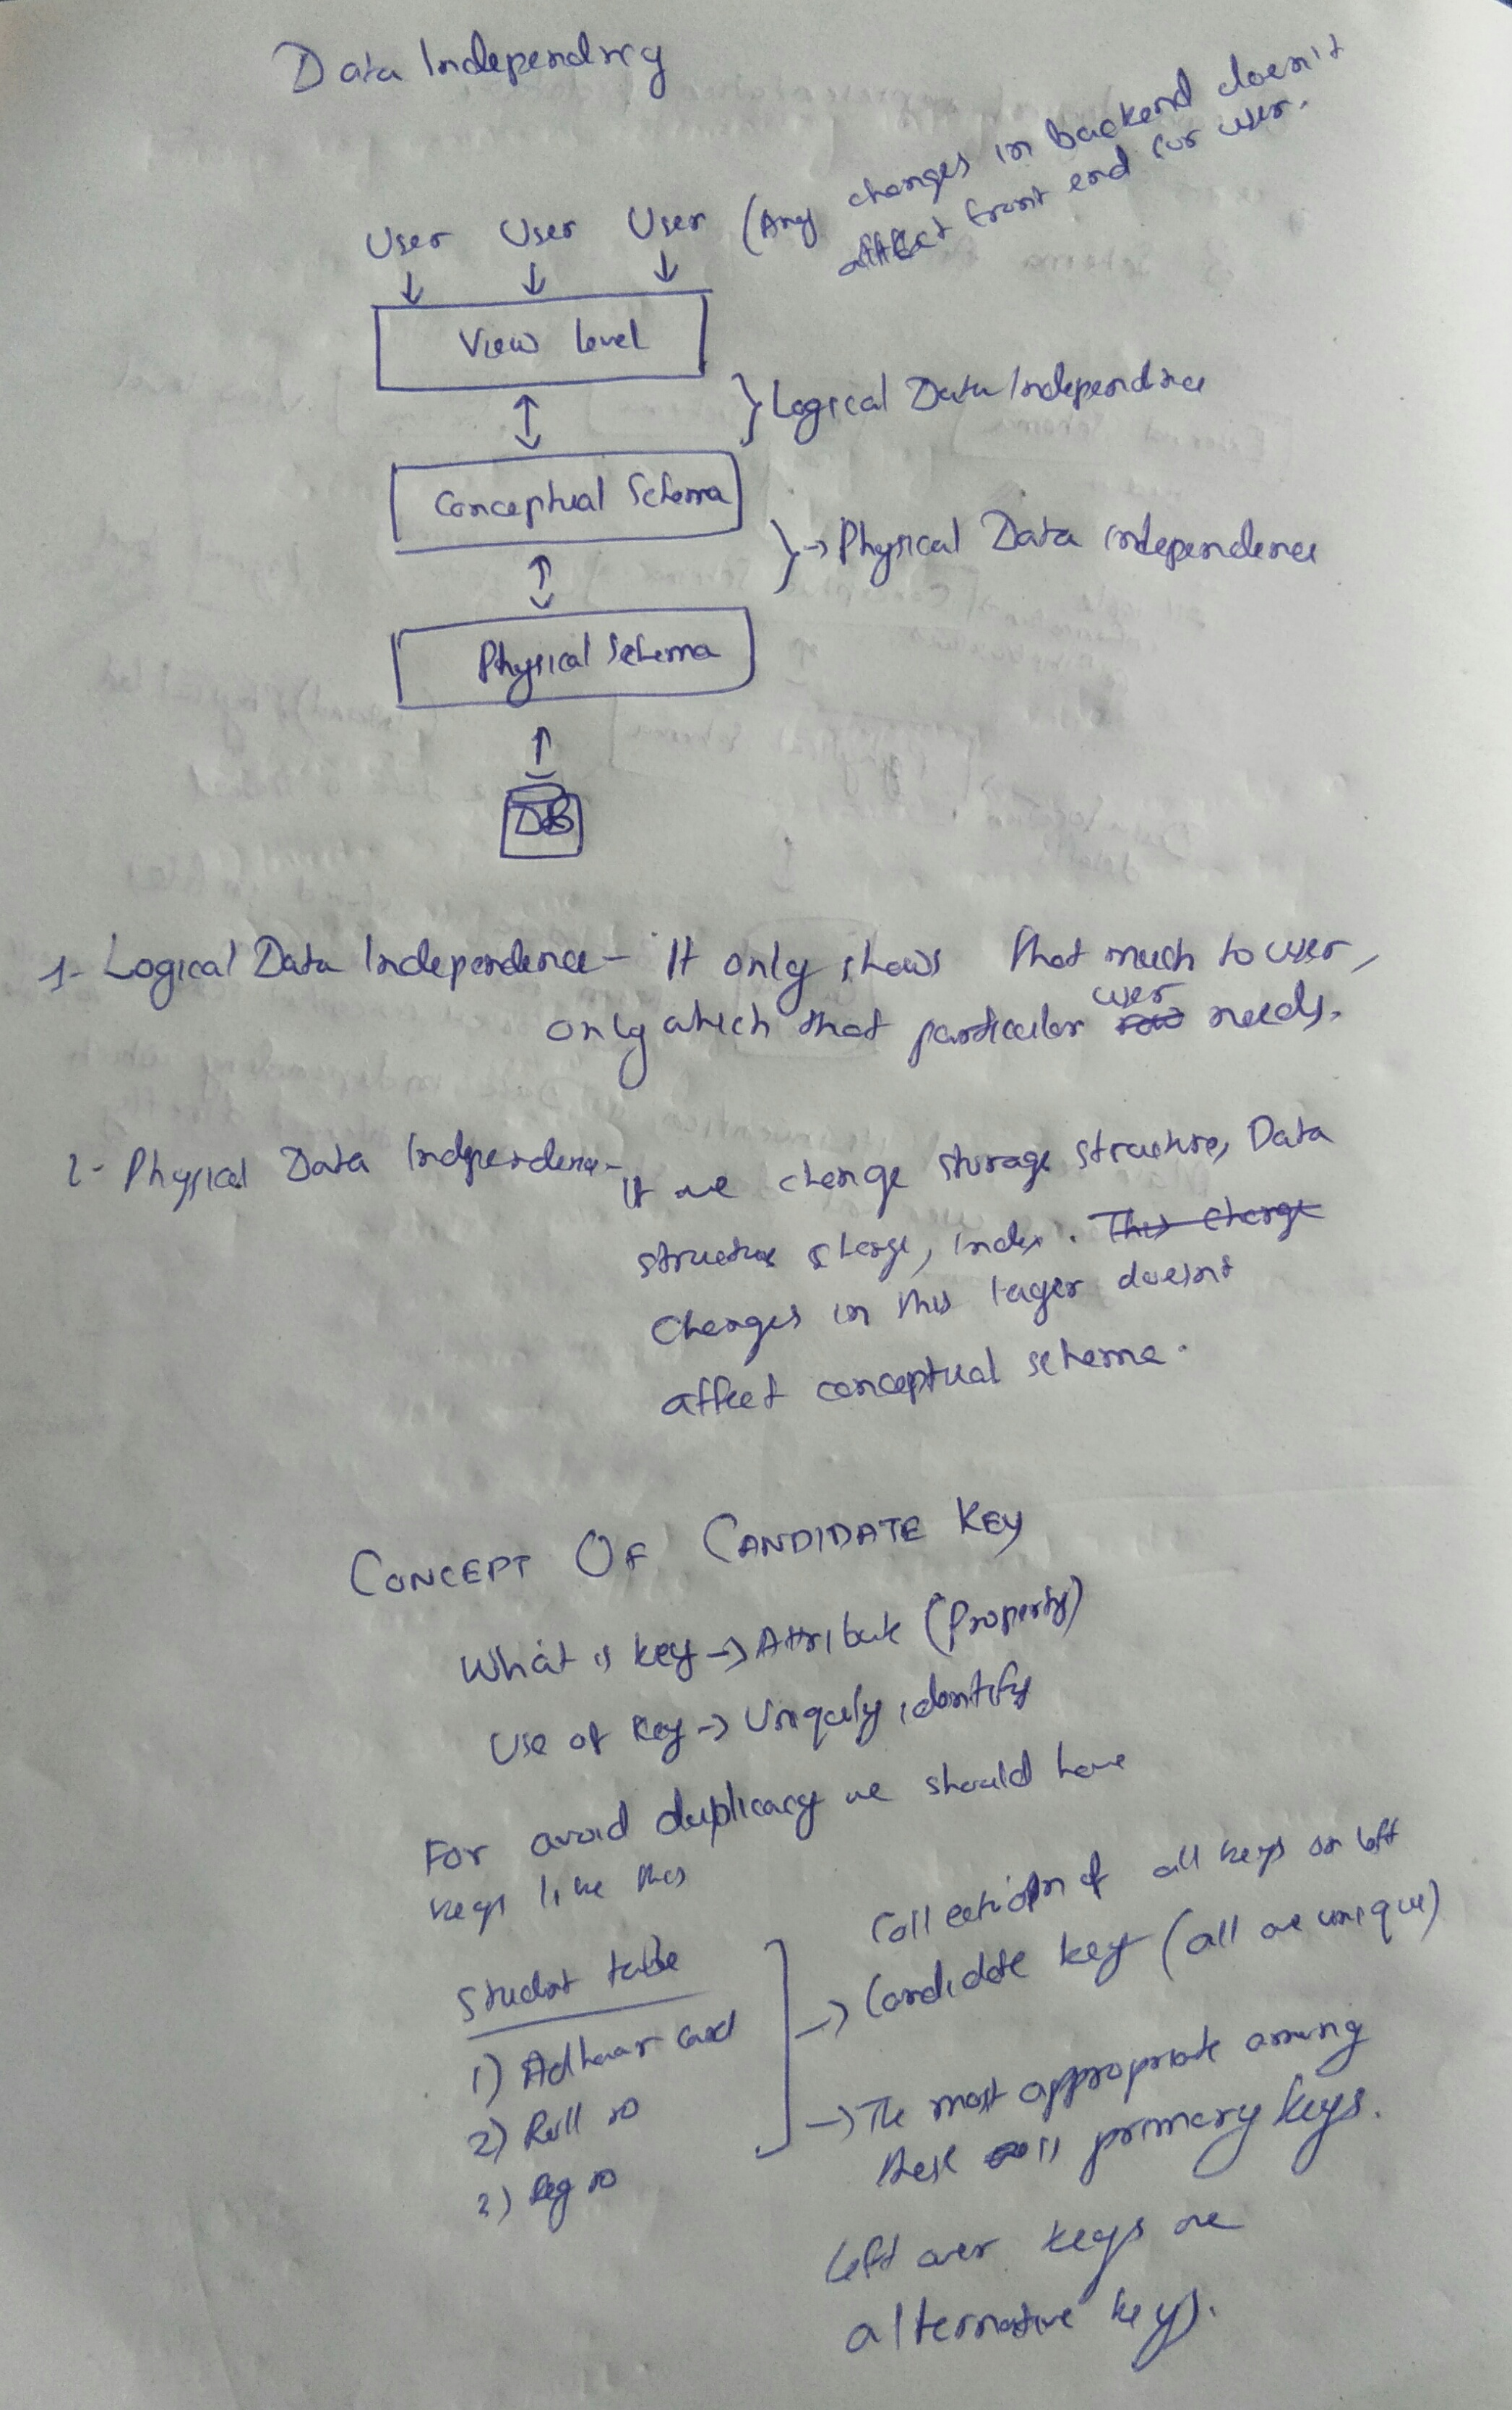 Data Independncy
User User User (Any changes in backend doesn't
affect front end for user.
View level
} Logical Data Independence
Conceptual Schema
} → Physical Data independence
Physical Schema
DB
1- Logical Data Independence - It only shows that much to user,
only which that particular user needs.
2- Physical Data Independence - If we change storage structure, Data
structure change, index. This change
Changes in this layer doesnt
affect conceptual schema.
CONCEPT OF CANDIDATE KEY
What is key → Attribute (Property)
Use of key → Uniquely identify
For avoid duplicacy we should have
keys like this
Student table
1) Adhaar card
2) Roll no
3) Reg no
Collection of all keys on left
→ Candidate key (all are unique)
→ The most appropriate among
these is primary keys.
left over keys are
alternative keys.